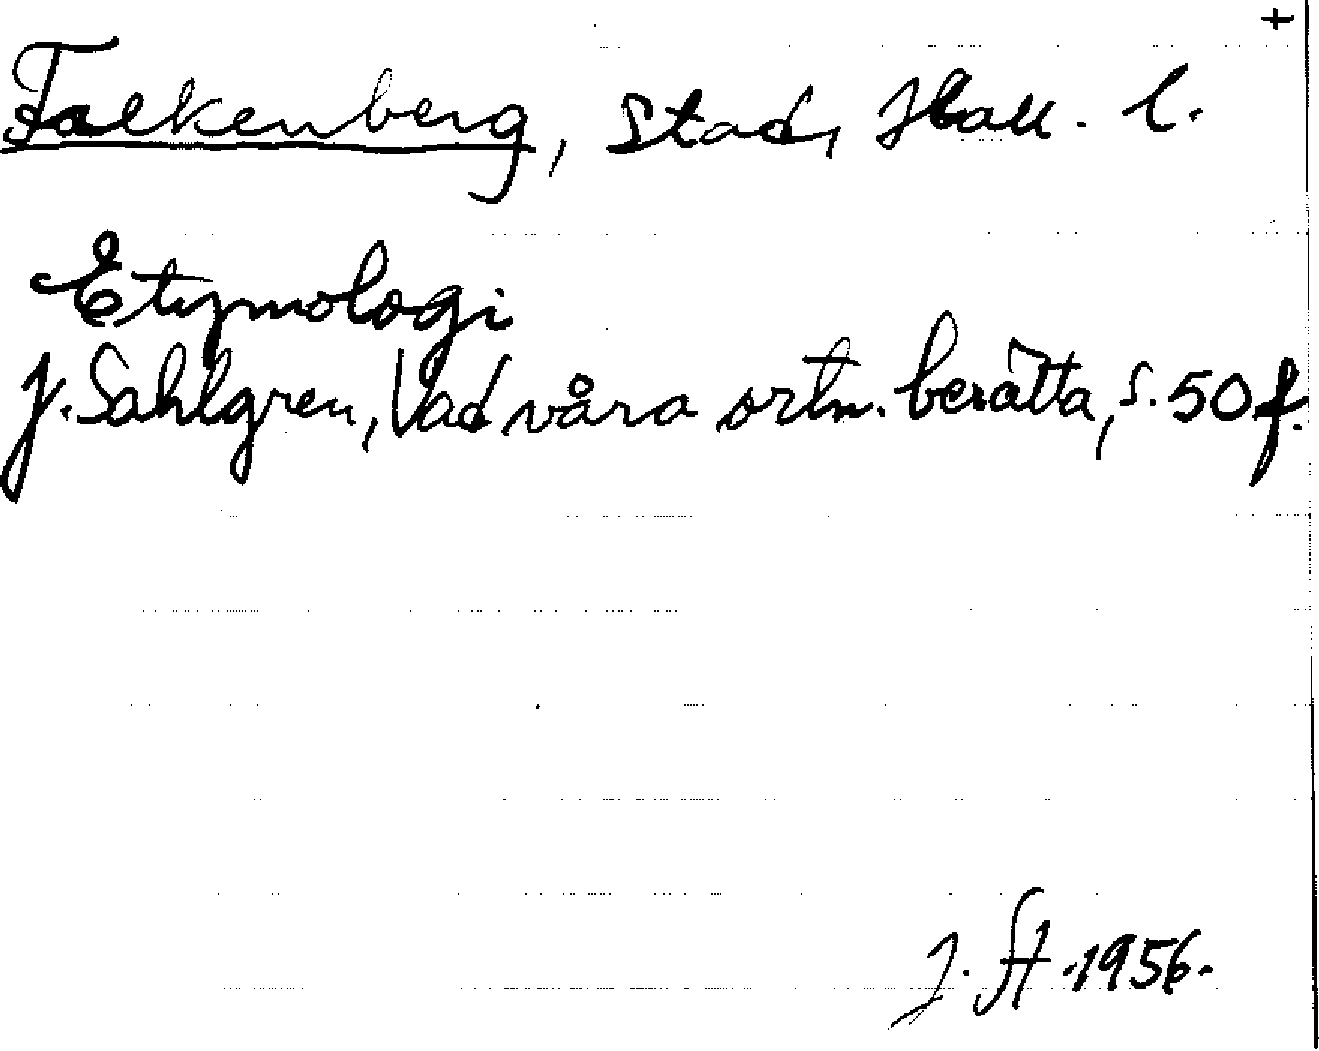 +
Falkenberg, stad, Hall. l.
Etymologi
J. Sahlgren, Vad våra ortn. berätta, s. 50 f.
J. St. 1956.